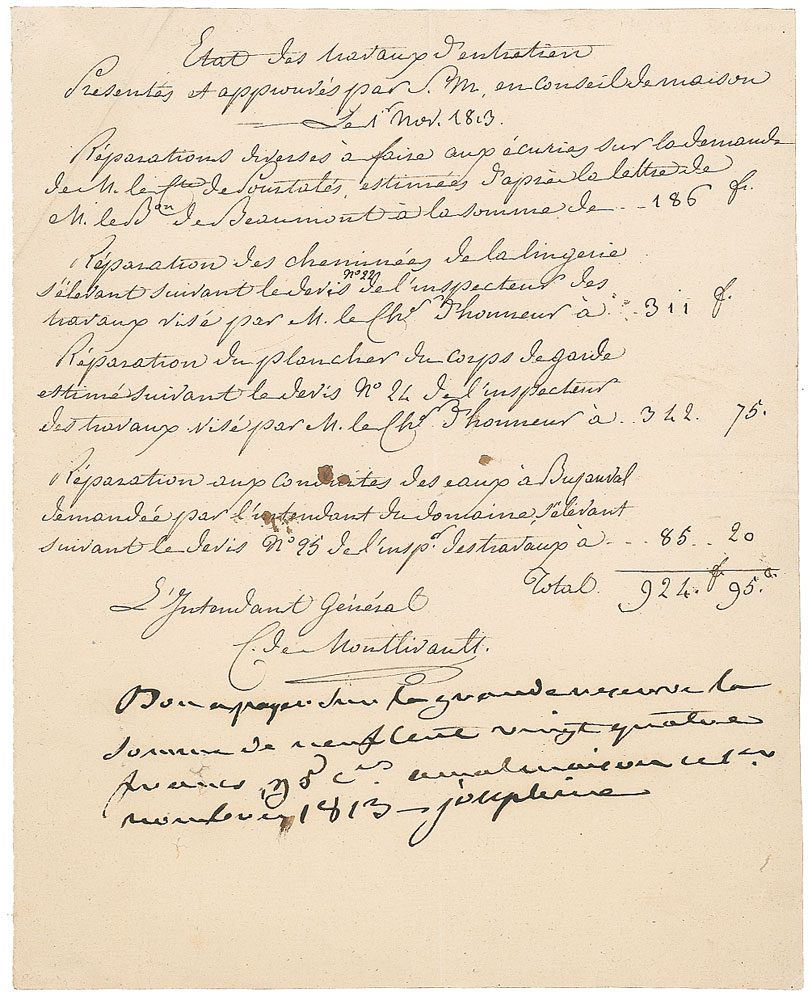 Etat des travaux d'entretien
Présentés et approuvés par S. M. en conseil de maison
Le 1r Nov. 1813.
Réparations diverses à faire aux écuries sur la demande
de M. le Cte de Pourtalés, estimées d'après la lettre de
M. le Bon de Beaumont à la somme de - - 186 f.
Réparation des cheminées de la lingerie
s'élevant suivant le devis n° 22 de l'inspecteur des
travaux visé par M. le Chr. d'honneur à - - 311 f.
Réparation du plancher du corps de garde
estimé suivant le devis N° 24 de l'inspecteur
des travaux visé par M. le Chr. d'honneur à - - 342. 75.
Réparation aux conduites des eaux à Buzanval
demandée par l'intendant du domaine, s'élevant
suivant le devis N° 25 de l'inspr. des travaux à - - - 85 - - 20
Total. 924. f 95. c.
L'Intendant Général
C. de Montlivault.
Bon a payer sur la grande reserve la
somme de neuf cent vingt quatre
francs 95 cmes a malmaison ce 1er
novembre 1813 - joséphine